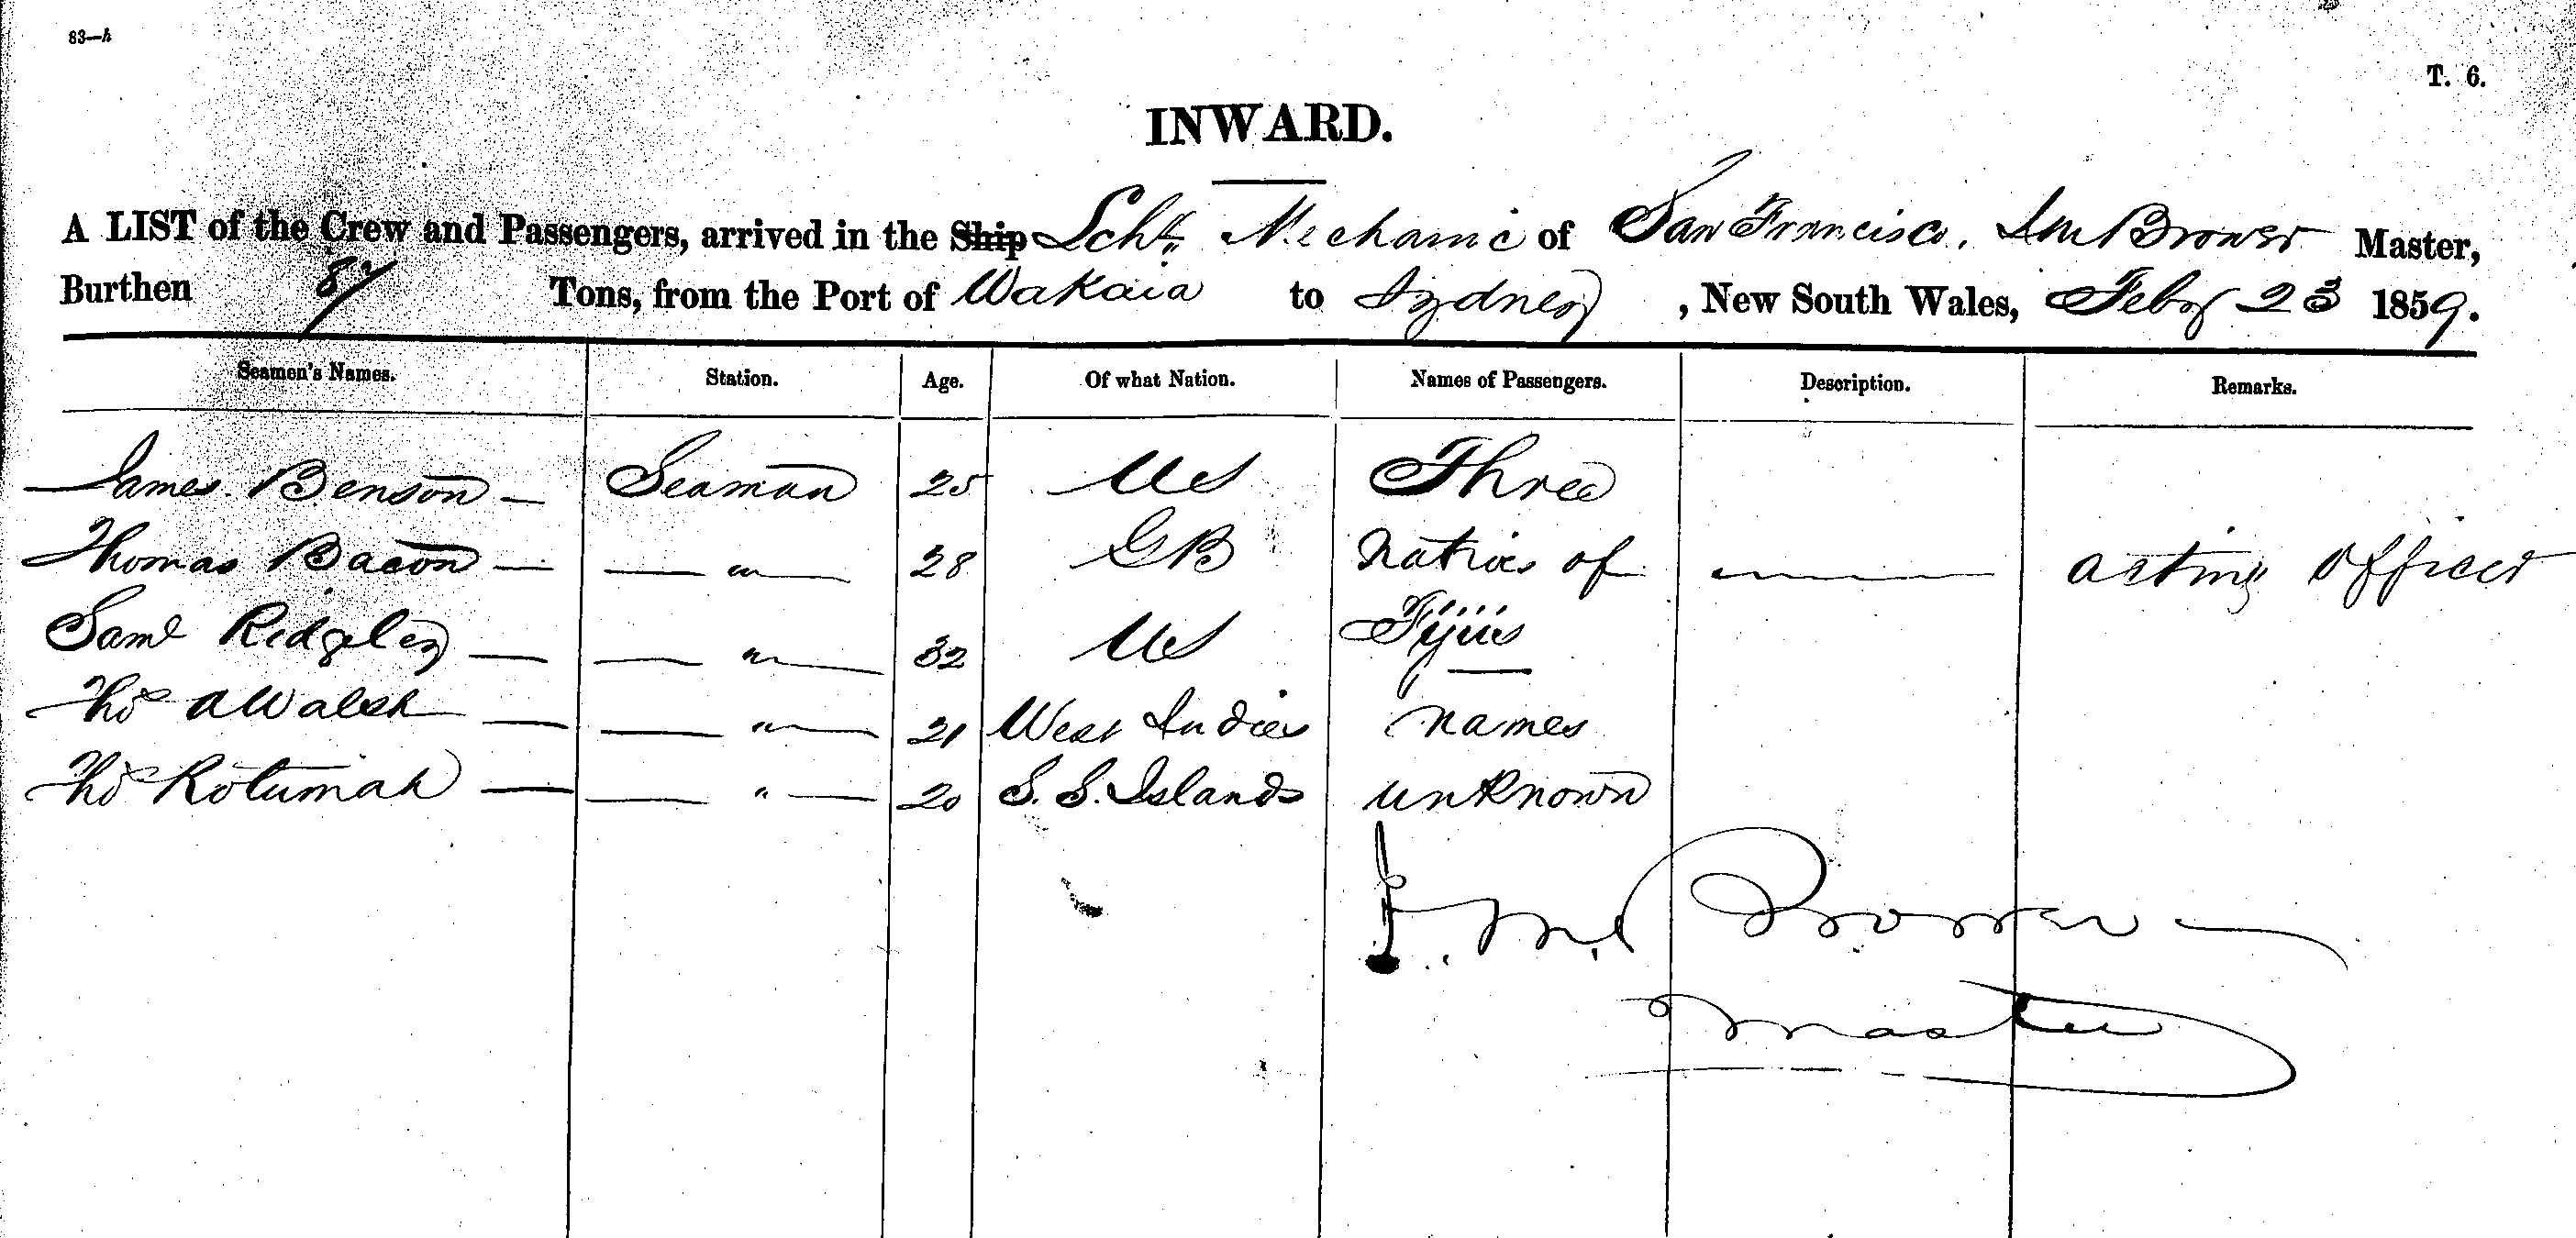 83—A
T. 6.
INWARD.
A LIST of the Crew and Passengers, arrived in the Ship Schr Mechanic of San Francisco, Brower Master,
Burthen 87 Tons, from the Port of Wakaia to Sydney, New South Wales, Feby 23 1859.
Seamen's Names. Station. Age. Of what Nation. Names of Passengers. Description. Remarks.
James Benson — Seaman 25 US Three
Thomas Bacon — — " — 28 GB Natives of — acting officer
Saml Ridgley — — " — 32 US Fijiis
Thos A Walsh — — " — 21 West Indies names
Thos Rotumah — — " — 20 S. S. Islands unknown
J. M. Brower
Master